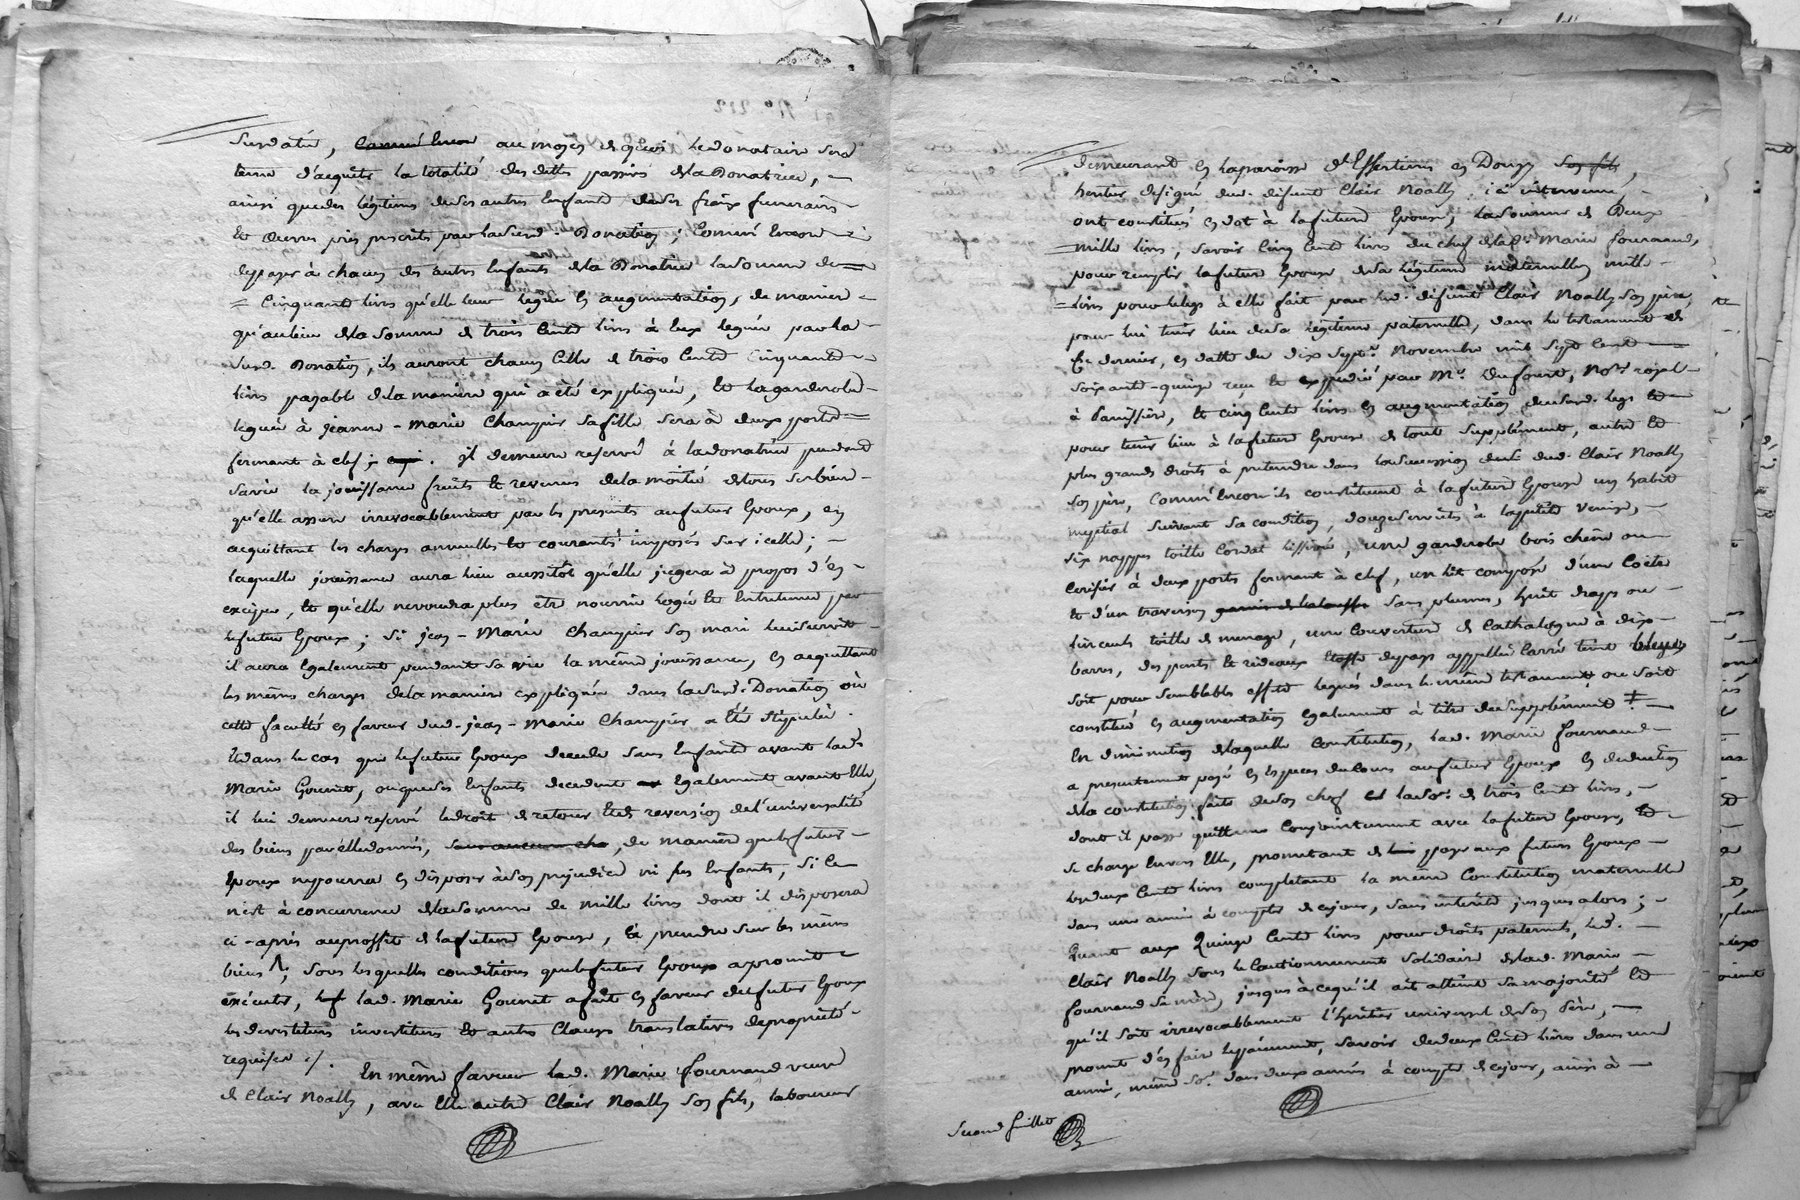 Susdatée, au moyen de quoi le donataire sera
tenu d'acquitter la totalité des dettes passives de la Donatrice,
ainsi que des légitimes de ses autres Enfants de ses fraix funeraires
et œuvres pies prescrits par la susd. Donation ; Comm'Encore
de payer à chacun des autres Enfants de la Donatrice la somme de
Cinquante livres qu'elle leur legue en augmentation, de maniere
qu'au lieu de la somme de trois Cents livres à Eux leguée par la
susd. Donation, ils auront chacun Celle de trois Cents Cinquante
livres payable de la maniere qui a été expliquée, Et la garderobe
leguée à jeanne-Marie Champier sa fille sera à deux portes
fermant à clef ; il demeure reservé à la donatrice pendant
sa vie la jouissance fruits et revenus de la moitié de tous ses biens
qu'elle assure irrevocablement par les presentes au futur Epoux, en
acquittant les charges annuelles et courantes imposées sur icelle ;
laquelle jouissance aura lieu aussitôt qu'elle jugera à propos d'en
exciper, Et qu'elle ne voudra plus être nourrie logée et Entretenue par
le futur Epoux ; Si jean-Marie Champier son mari lui survit
il aura Egalement pendant sa vie la même jouissance, en acquittant
les mêmes charges de la maniere expliquée dans la susd. Donation où
cette faculté en faveur dud. jean-Marie Champier a Eté stipulée.
Et dans le cas que le futur Epoux decede sans Enfants avant lad.
Marie Gounet, ou que ses Enfants decedent Egalement avant Elle,
il lui demeure reservé le droit de retour Et de reversion de l'universalité
des biens par elle donnés, de maniere que le futur
Epoux ne pourra en disposer à son prejudice ni ses Enfants, Si ce
n'est à concurrence de la somme de mille livres dont il disposera
ci-après au proffit de la future Epouse, à prendre sur les mêmes
biens ; Sous lesquelles conditions que le futur Epoux a promit
exécuter, lad. Marie Gounet a fait en faveur du futur Epoux
les devestitures investitures et autres Clauses translatives de propriété
requises ./.
En même faveur lad. Marie fournand veuve
de Clair Noally, avec Elle autre Clair Noally son fils, laboureur
demeurant en la paroisse d'Essertines en Donzy
heritier designé dud. défunt Clair Noally ici intervenus
ont constitués en dot à la future Epouse, la somme de Deux
mille livres, savoir Cinq Cents livres du chef de lad. Marie fournand,
pour remplir la future Epouse de sa légitime maternelle, mille
livres pour le legs à elle fait par led. défunt Clair Noally son père
pour lui tenir lieu de sa légitime paternelle, dans le testament de
Ce dernier, en datte du dix sept Novembre mil sept Cents
soixante-quinze reçu et expedié par Mr. Dufour, Nore. royal
à Panissière, et cinq Cents livres en augmentation dud. legs et
pour tenir lieu à la future Epouse de tout supplément, autre et
plus grands droits à pretendre dans la succession dud. Clair Noally
son père, Comm'Encore ils constituent à la future Epouse un habit
nuptial suivant sa condition, douze serviettes à la petite Venise,
six nappes toille Cordat, une garderobe bois chêne ou
Cerisier à deux portes fermant à clef, un lit composé d'une Coëtre
et d'un traversin sans plumes, huit draps ou
linceuls toille de menage, une Couverture de Cathalogne à dix
barres, des pentes et rideaux Etoffe de pays appellée Carré teint bleue
soit pour semblables effets legués dans le même testament, ou soit
constitués en augmentation Egalement à titre de supplément
En diminution de laquelle Constitution, lad. Marie fournand
a presentement payé en Especes du Cours au futur Epoux en deduction
de la constitution faite de son chef la so. de trois Cents livres,
dont il passe quittance Conjointement avec la future Epouse, et
se charge Envers Elle, promettant de payer aux futurs Epoux
les deux Cents livres completant la même Constitution maternelle
dans une année à compter de ce jour, sans interêts jusques alors ;
Quant aux Quinze Cents livres pour droits paternels, led.
Clair Noally sous le Cautionnement solidaire de lad. Marie
fournand sa mère, jusques à ce qu'il ait atteint sa majorité Et
qu'il soit irrevocablement l'heritier universel de son père,
promet d'en faire le payement, savoir de deux Cents livres dans une
année, même so. dans deux années à compter de ce jour, ainsi à
Second feuillet